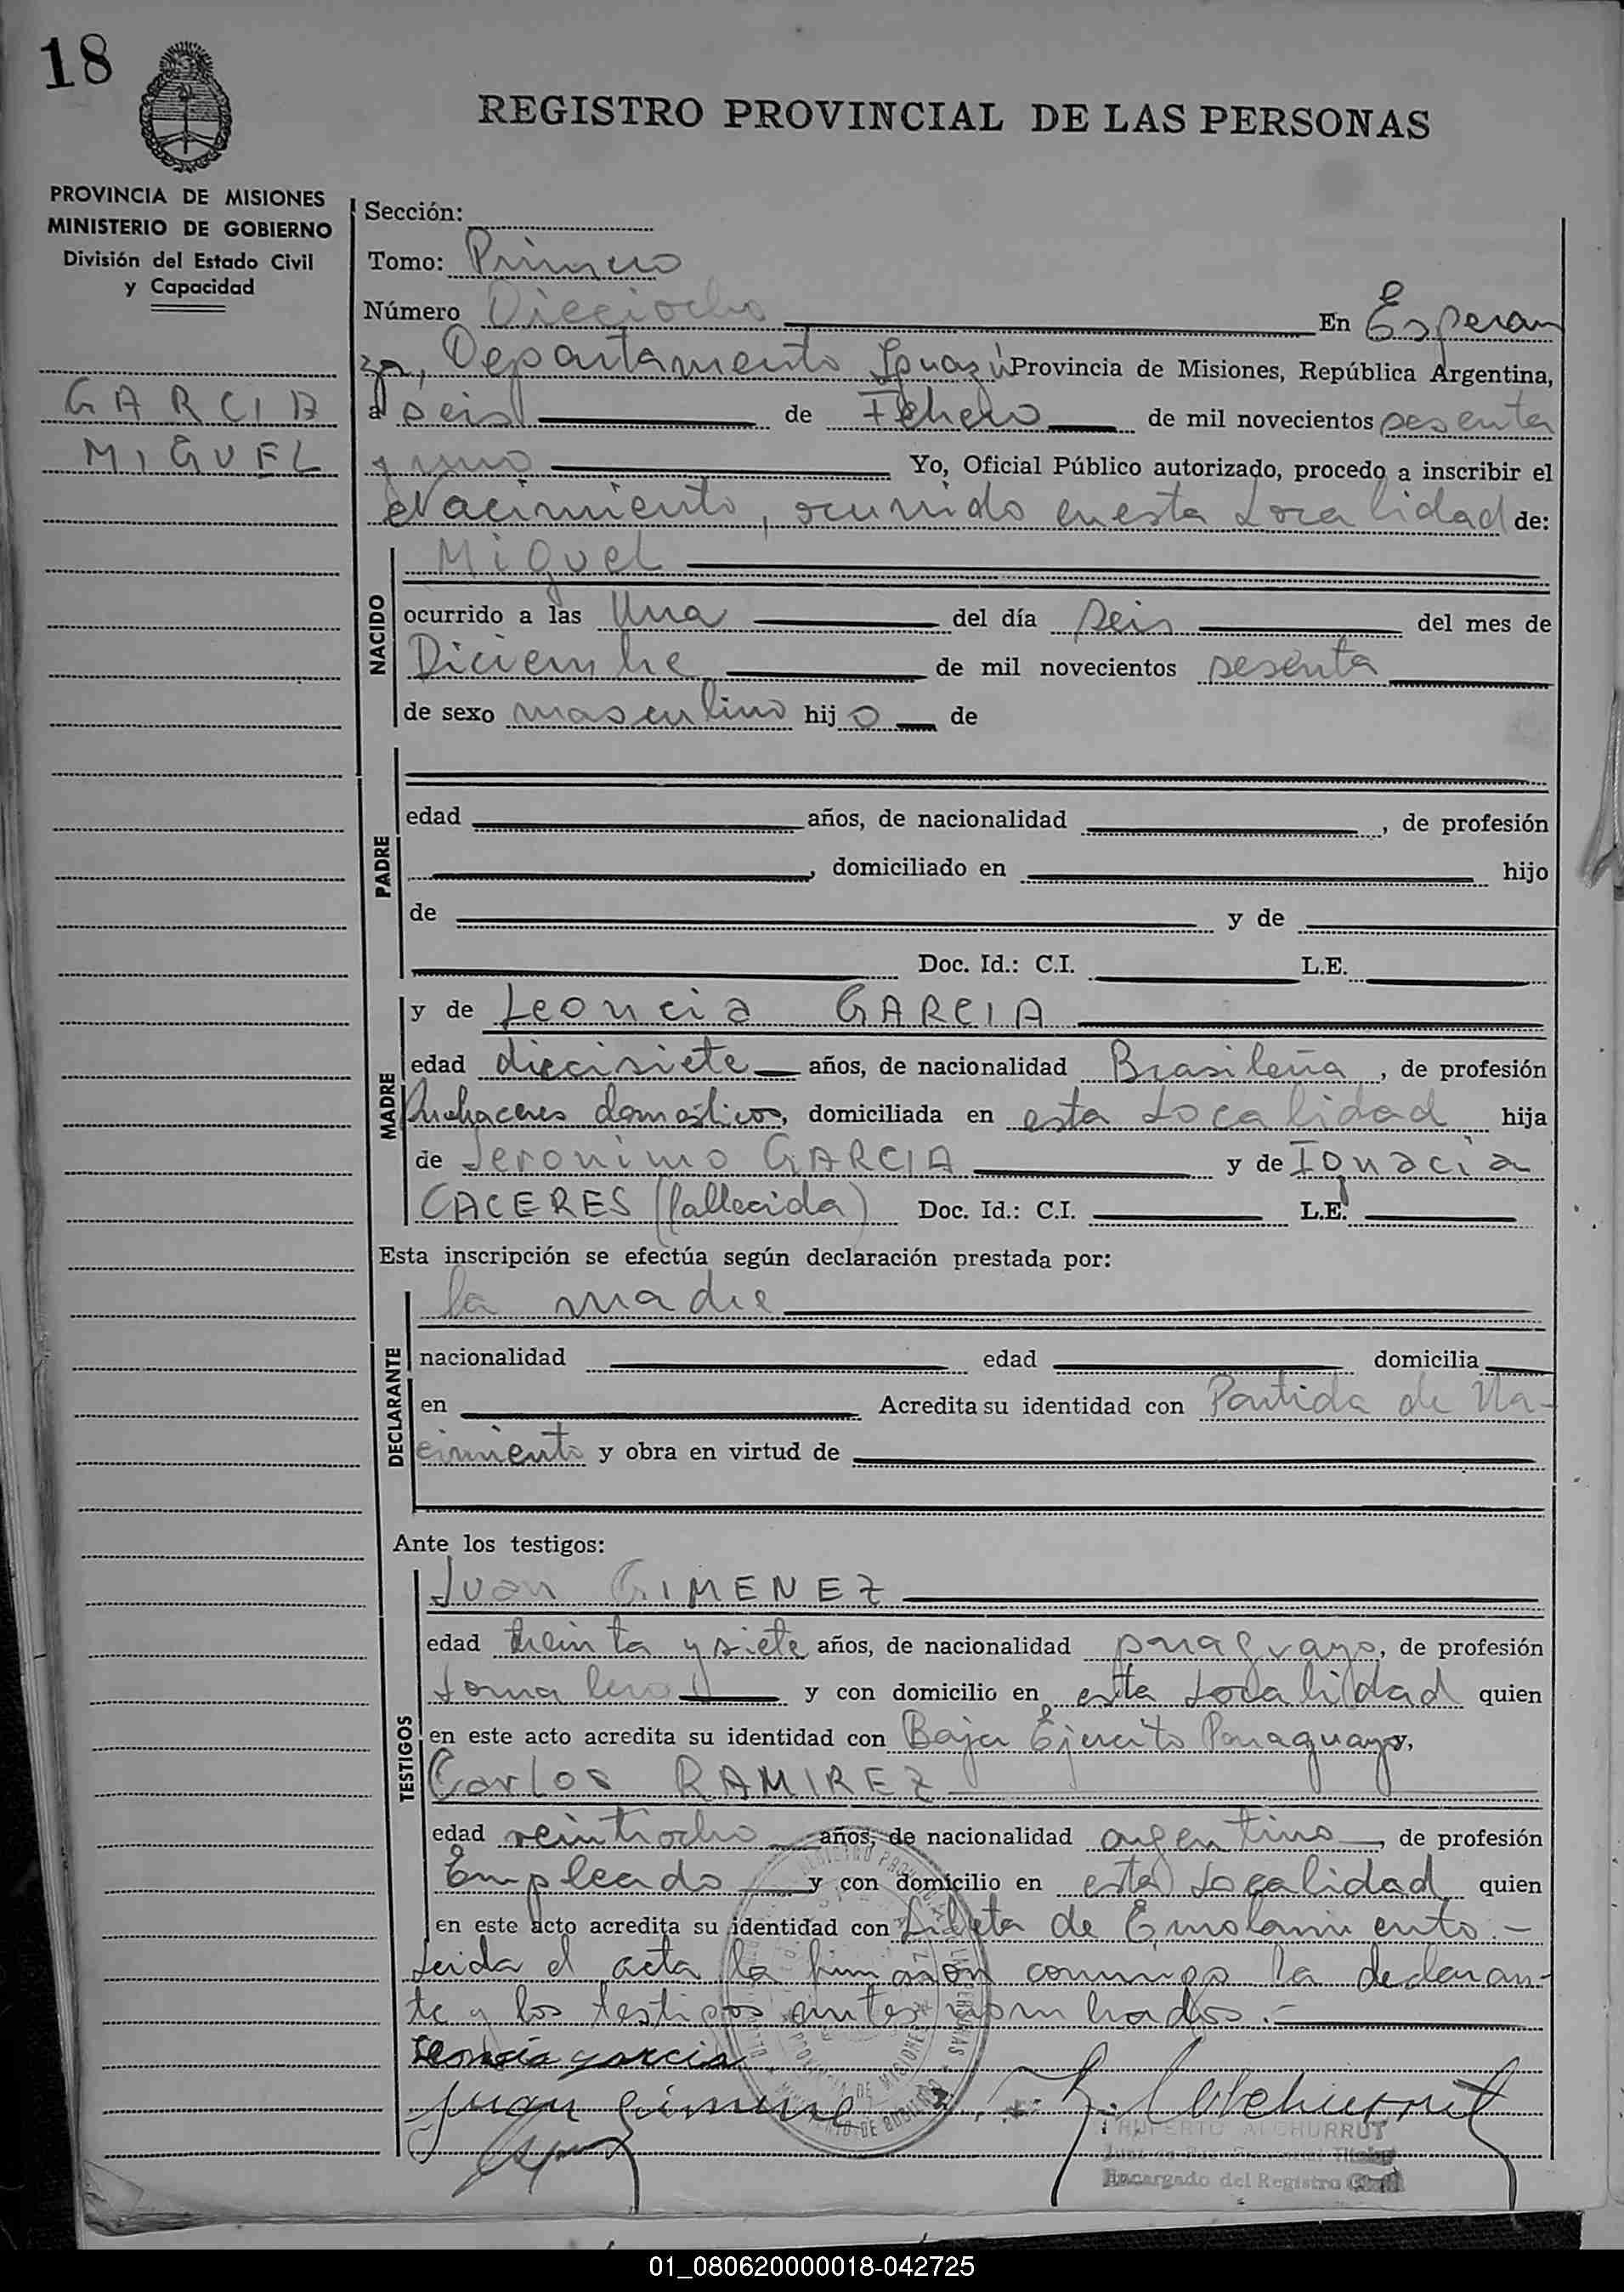 18
REGISTRO PROVINCIAL DE LAS PERSONAS
PROVINCIA DE MISIONES
MINISTERIO DE GOBIERNO
División del Estado Civil
y Capacidad
GARCIA
MIGUEL
Sección:
Tomo: Primero
Número Dieciocho En Esperan
za, Departamento Iguazú Provincia de Misiones, República Argentina,
a seis de Febrero de mil novecientos sesenta
y uno Yo, Oficial Público autorizado, procedo a inscribir el
Nacimiento, ocurrido en esta Localidad de:
NACIDO
Miguel
ocurrido a las Una del día seis del mes de
Diciembre de mil novecientos sesenta
de sexo masculino hijo de
PADRE
edad años, de nacionalidad , de profesión
, domiciliado en hijo
de y de
Doc. Id.: C.I. L.E.
MADRE
y de Leoncia GARCIA
edad diecisiete años, de nacionalidad Brasileña, de profesión
Quehaceres domésticos, domiciliada en esta Localidad hija
de Jeronimo GARCIA y de Ignacia
CACERES (fallecida) Doc. Id.: C.I. L.E.
Esta inscripción se efectúa según declaración prestada por:
DECLARANTE
la madre
nacionalidad edad domicilia
en Acredita su identidad con Partida de Na-
cimiento y obra en virtud de
Ante los testigos:
TESTIGOS
Juan GIMENEZ
edad treinta y siete años, de nacionalidad paraguayo, de profesión
Jornalero y con domicilio en esta Localidad quien
en este acto acredita su identidad con Baja Ejercito Paraguayo y,
Carlos RAMIREZ
edad veintiocho años, de nacionalidad argentino, de profesión
Empleado y con domicilio en esta Localidad quien
en este acto acredita su identidad con Libreta de Enrolamiento.-
Leida el acta la firman conmigo la declaran-
te y los testigos antes nombrados.-
Leoncia garcia
Juan Gimenez
Encargado del Registro Civil
01_080620000018-042725